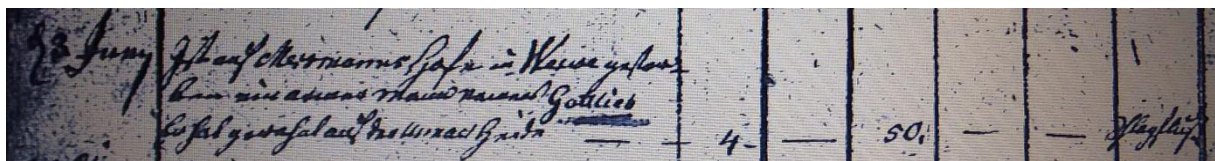 23 Juny Ist auf Mersmanns Hofe in gestor-
ben ein armer Mann namens Gottlieb
Er hat gewohnt auf der Heide — — 4 — — 50. — —